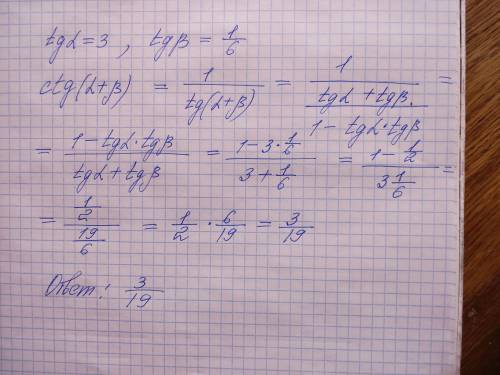 tgα = 3 , tgβ = 1/6
ctg(α+β) = 1/tg(α+β) = 1/((tgα + tgβ)/(1 - tgα·tgβ)) =
= (1 - tgα·tgβ)/(tgα + tgβ) = (1 - 3·1/6)/(3 + 1/6) = (1 - 1/2)/(3 1/6) =
= (1/2)/(19/6) = 1/2 · 6/19 = 3/19
Ответ: 3/19